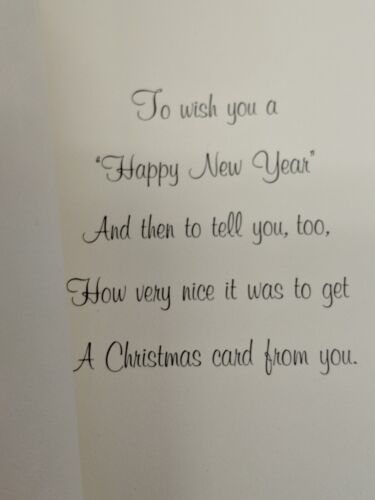 To wish you a
"Happy New Year"
And then to tell you, too,
How very nice it was to get
A Christmas card from you.